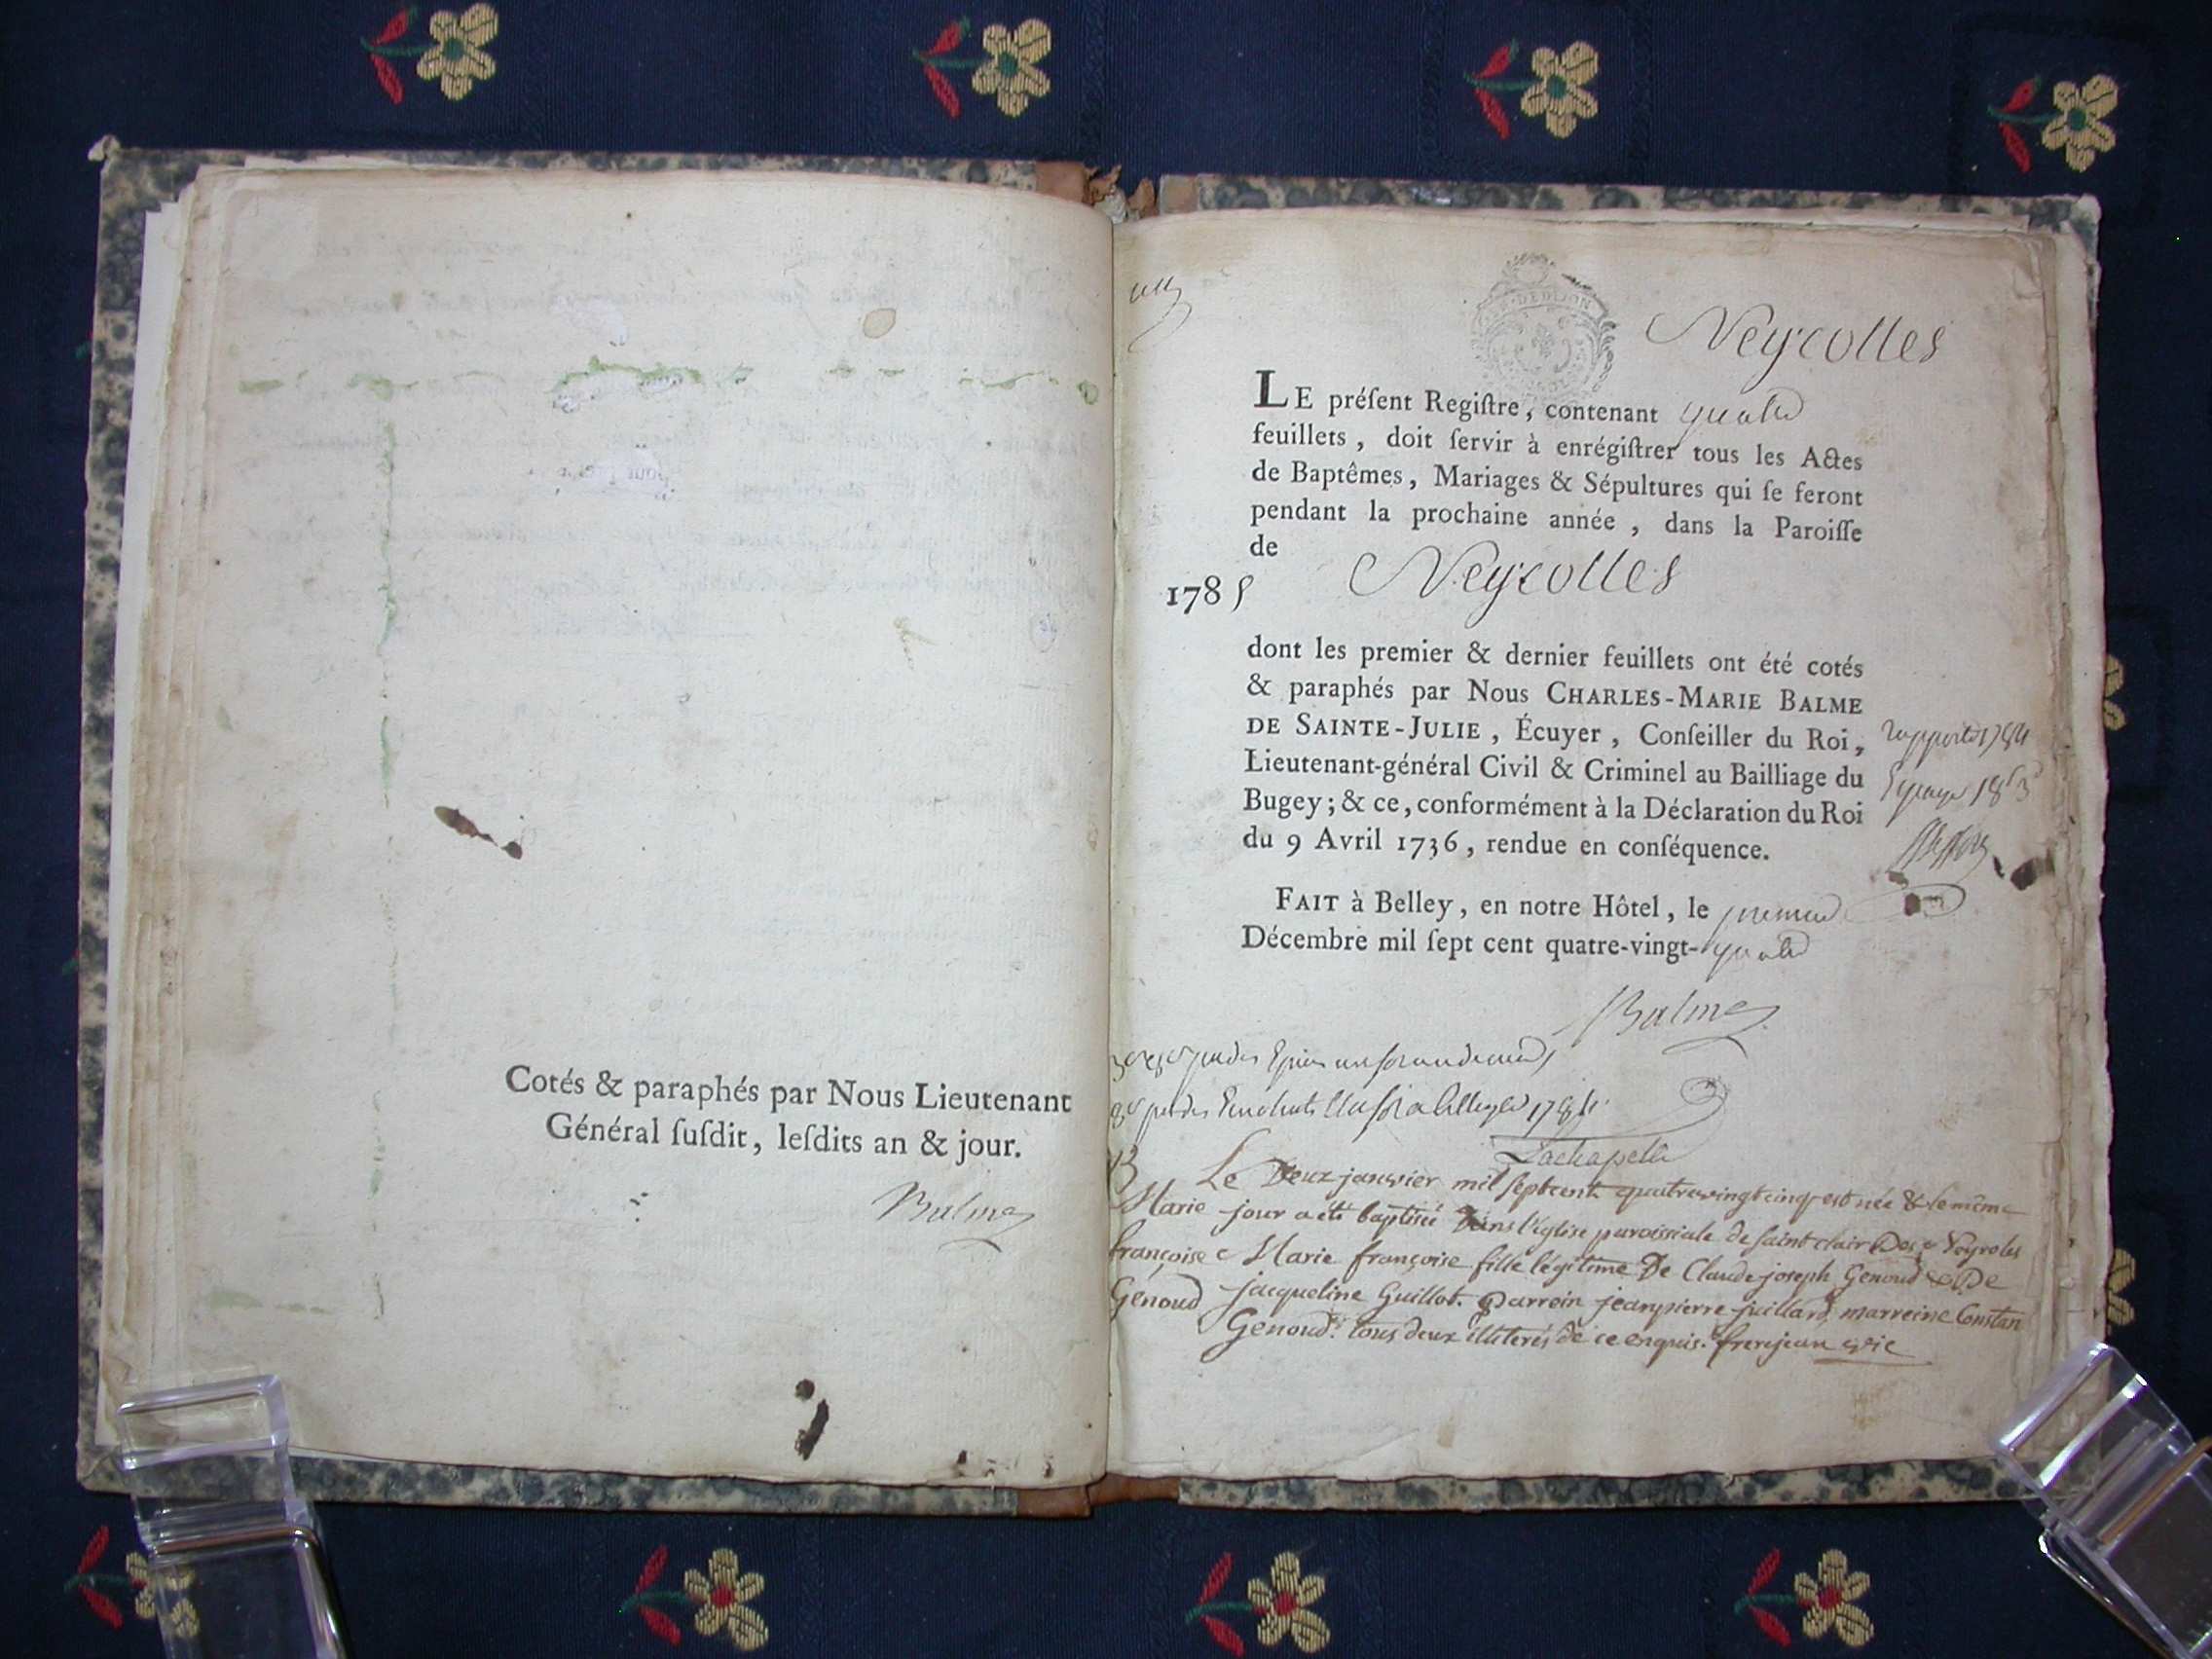 Cotés & paraphés par Nous Lieutenant
Général ſuſdit, leſdits an & jour.
Balme
un
DE DIJON
Neyrolles
LE préſent Regiſtre, contenant quatre
feuillets, doit ſervir à enrégiſtrer tous les Actes
de Baptêmes, Mariages & Sépultures qui ſe feront
pendant la prochaine année, dans la Paroiſſe
de
Neyrolles
1785
dont les premier & dernier feuillets ont été cotés
& paraphés par Nous CHARLES-MARIE BALME
DE SAINTE-JULIE, Écuyer, Conſeiller du Roi,
Lieutenant-général Civil & Criminel au Bailliage du
Bugey; & ce, conformément à la Déclaration du Roi
du 9 Avril 1736, rendue en conſéquence.
FAIT à Belley, en notre Hôtel, le premier
Décembre mil ſept cent quatre-vingt-quatre
Balme
1784
Lachapelle
B Le Deux janvier mil sept cent quatrevingt cinq est née & le même
Marie jour a été baptisée Dans l'église paroissiale de saint clair Des Neyroles
françoise Marie françoise fille légitime De Claude joseph Genoud & De
Genoud jacqueline Guillot. parrein jean pierre juillard marreine Constan
Genoud. tous deux illiterés de ce enquis. frerejean vic